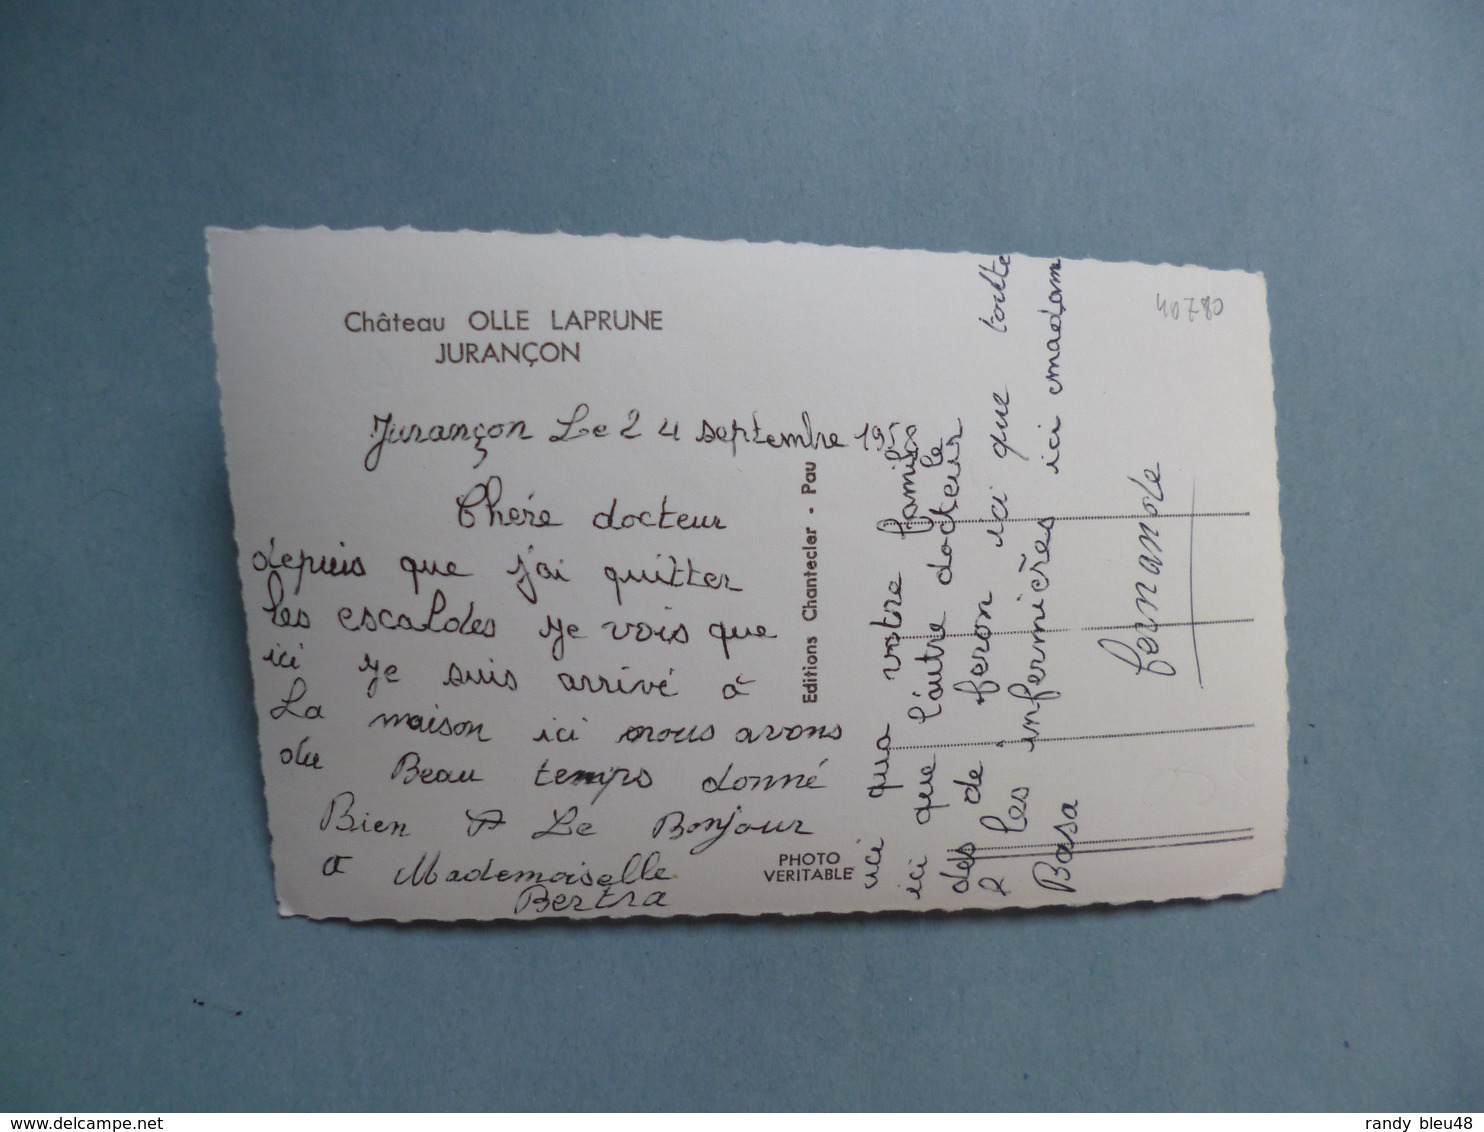 Château OLLE LAPRUNE
JURANÇON
Jurançon Le 24 septembre 1958
Chére docteur
depuis que j'ai quitter
les escaldes je vois que
ici je suis arrivé a
La maison ici nous avons
du Beau temps donné
Bien Le Bonjour
a Mademoiselle
Bertra
Editions Chantecler - Pau
PHOTO
VERITABLE
ici qua votre famille
ici que l'autre docteur
des de feron ici que toute
les infermières ici madam
Basa
fernande
40780
delcampe.net
randy bleu48